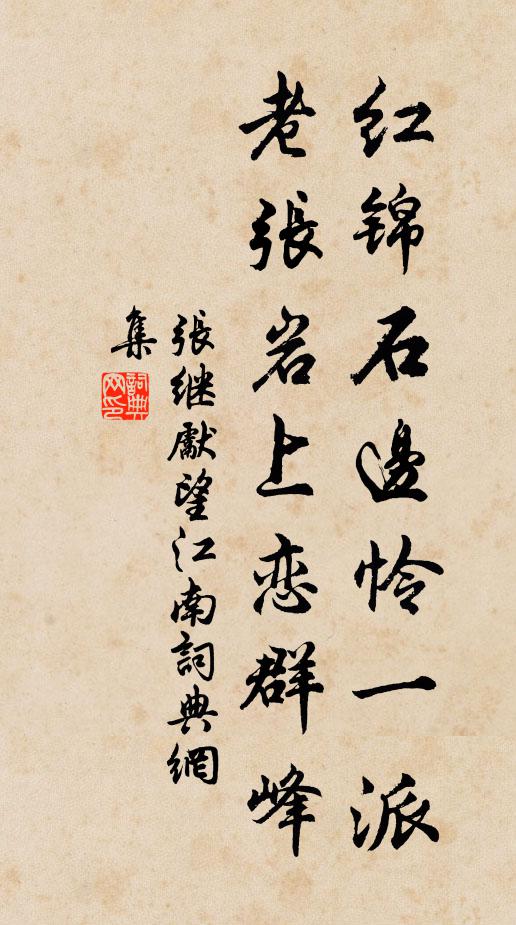 红锦石邊怜一派
老張岩上恋群峰
張继獻望江南詞典網
集
詞典网印